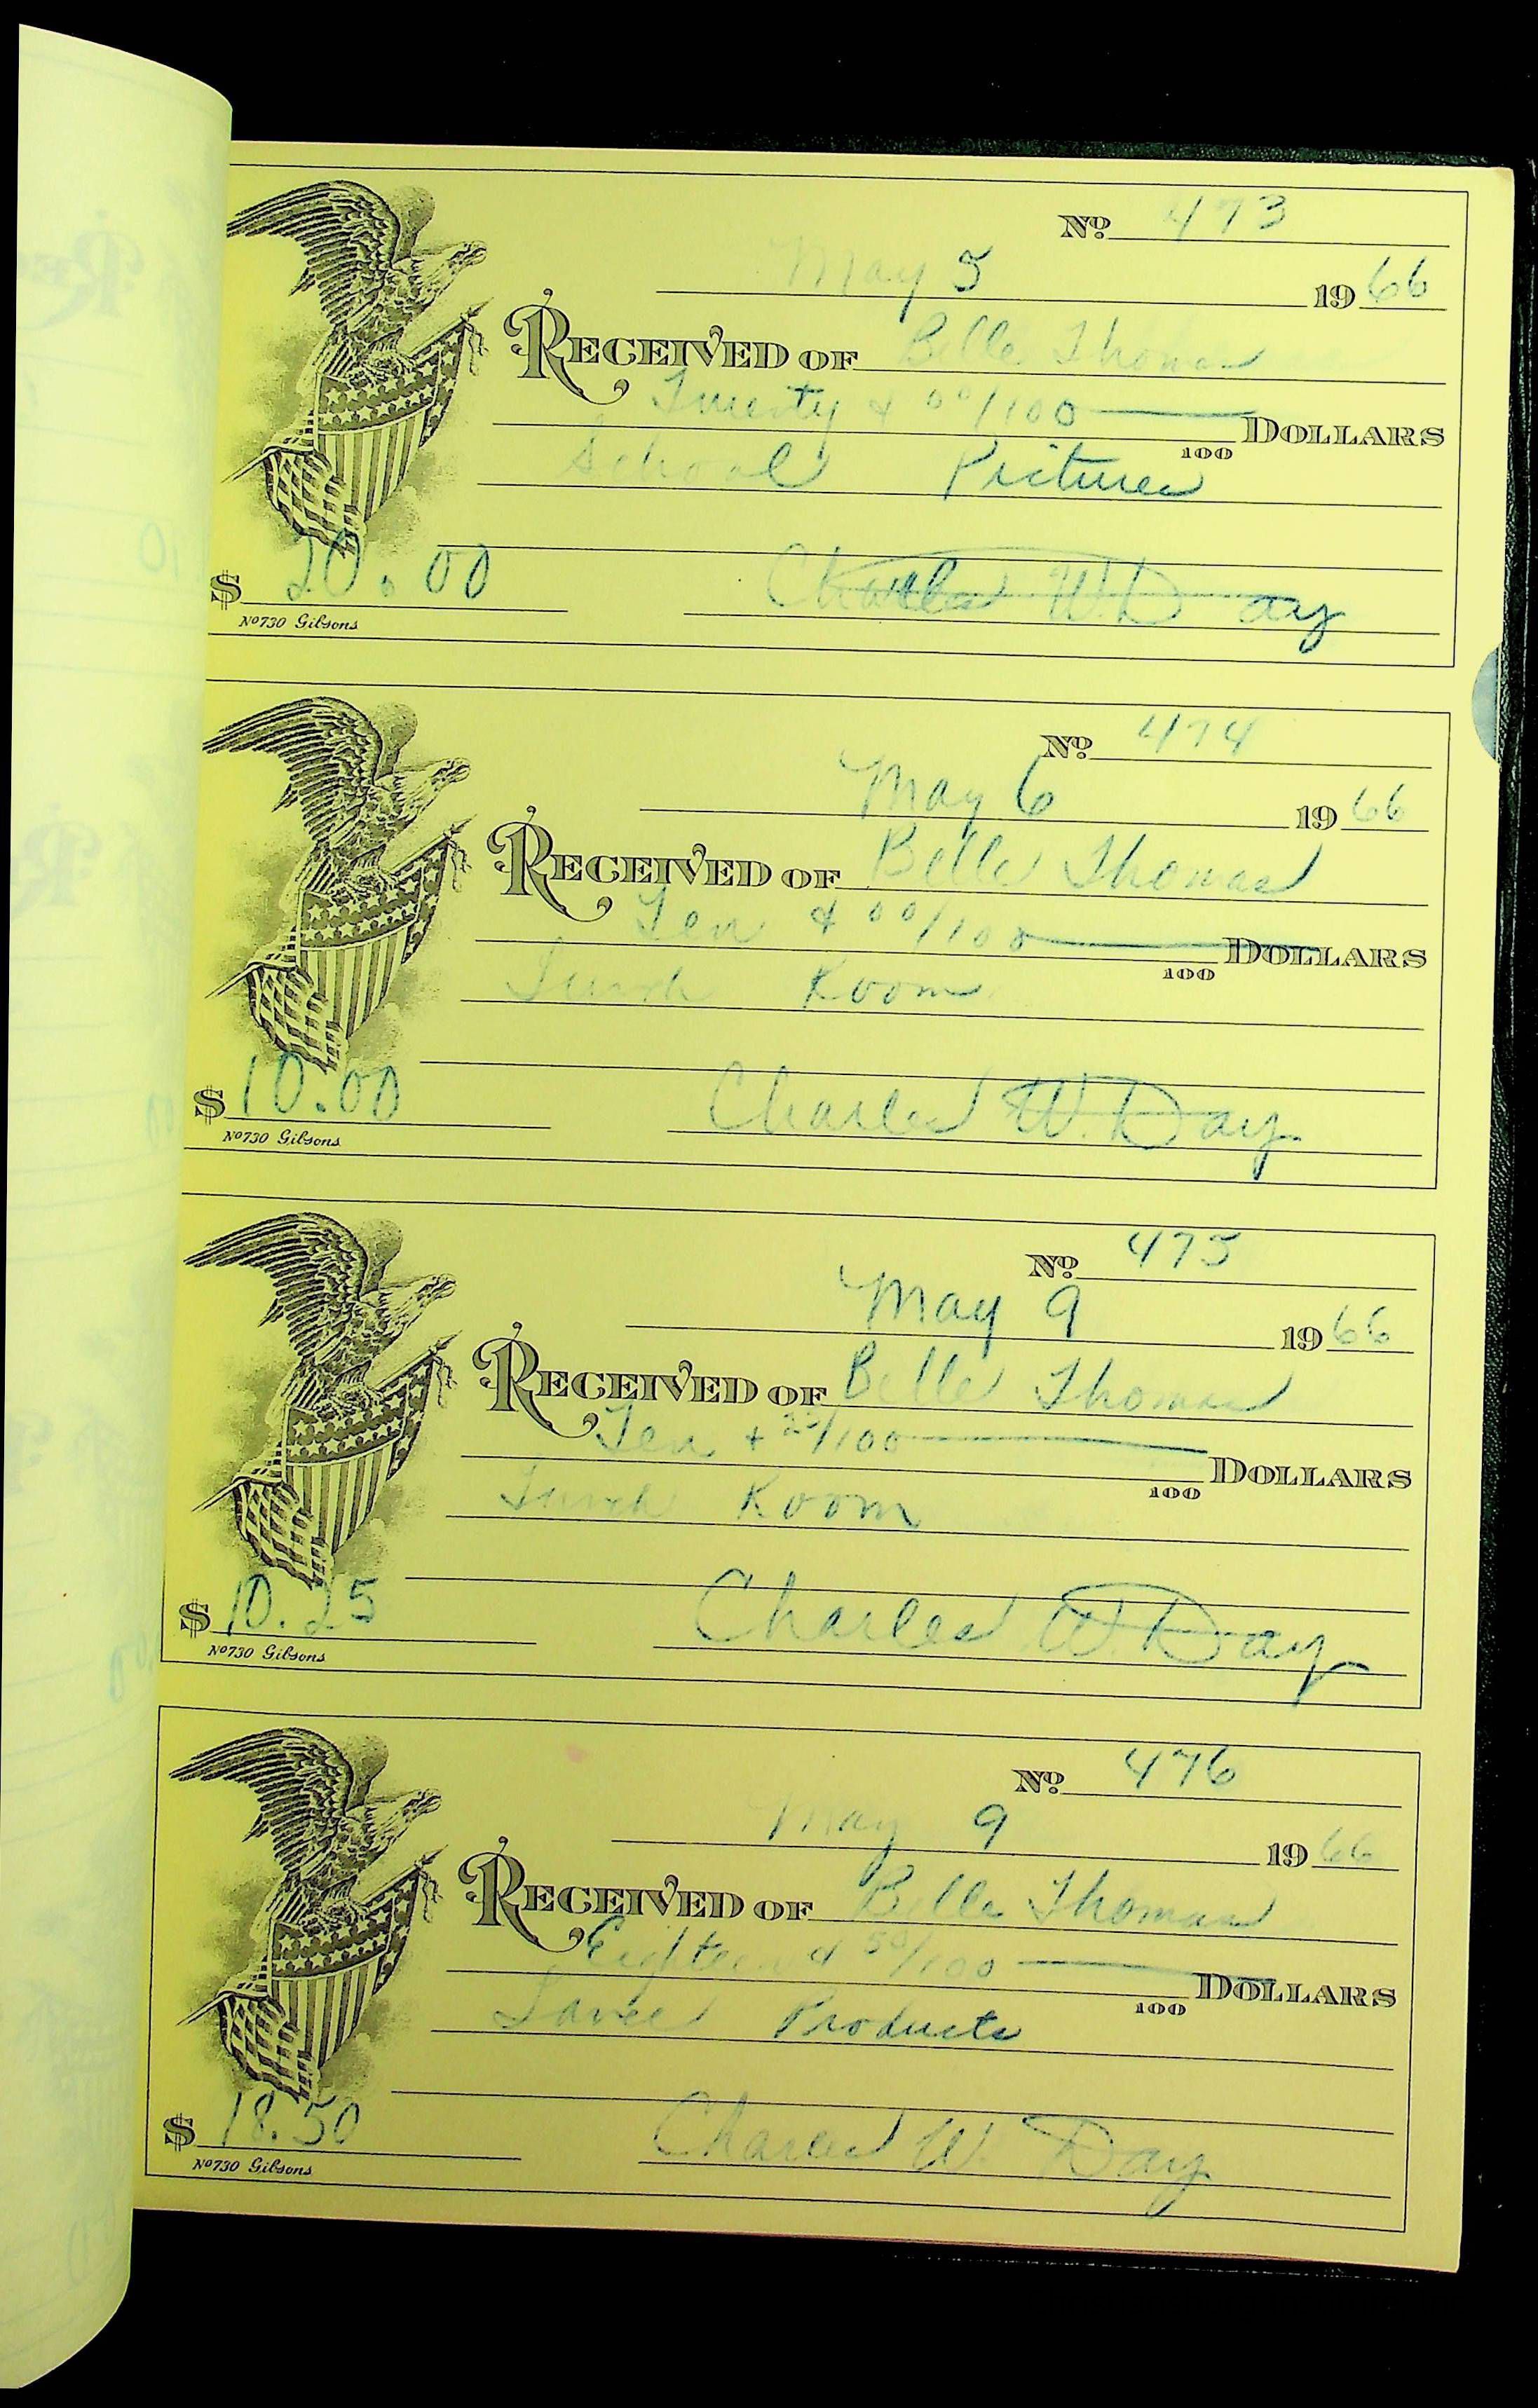 Nº 473
May 5 19 66
RECEIVED OF Belle Thomas
Twenty & 00/100 DOLLARS
100
School Pictures
$ 20.00 Charles W. Day
Nº730 Gibsons
Nº 474
May 6 19 66
RECEIVED OF Belle Thomas
Ten & 00/100 DOLLARS
100
Lunch Room
$ 10.00 Charles W. Day
Nº730 Gibsons
Nº 475
May 9 19 66
RECEIVED OF Belle Thomas
Ten + 25/100 DOLLARS
100
Lunch Room
$ 10.25 Charles W. Day
Nº730 Gibsons
Nº 476
May 9 19 66
RECEIVED OF Belle Thomas
Eighteen & 50/100 DOLLARS
100
Products
$ 18.50 Charles W. Day
Nº730 Gibsons